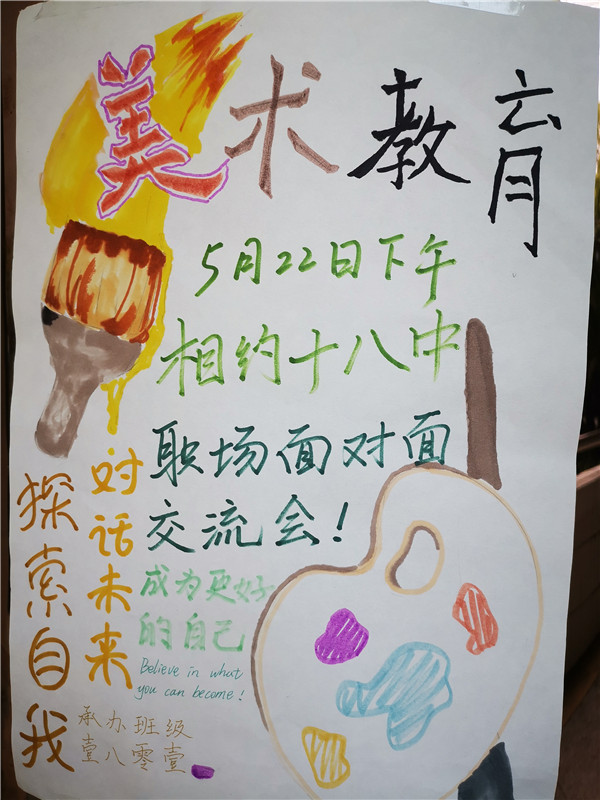 美术教育
5月22日下午
相约十八中
职场面对面
交流会!
成为更好
的自己
Believe in what
you can become!
对话未来
探索自我
承办班级
壹八零壹